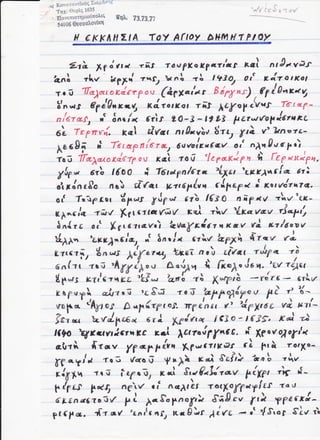 Κωνσταντῖνος
Ταχ. Θυρίς 1635
Πανεπιστημιούπολις
54006 Θεσσαλονίκη
Τηλ. 73.73.77
Η ΕΚΚΛΗΣΙΑ ΤΟΥ ΑΓΙΟΥ ΔΗΜΗΤΡΙΟΥ
Στὰ χρόνια τῆς τουρκοκρατίας καὶ πιθανῶς
ἀπὸ τὴν ἀρχή της, ἀπὸ τὸ 1430, οἱ κάτοικοι
τοῦ Παλαιοκάστρου (ἀρχαίας Βέργης), βρέθηκαν,
ὅπως βρέθηκαν, κάτοικοι τῆς λεγομένης Τσιαρ-
πίστας, ἡ ὁποία στὶς 20-3-1923 μετωνομάστηκε
σὲ Τερπνή. καὶ εἶναι πιθανὸν ὅτι, γιὰ ν' ἀποτε-
λεσθῆ ἡ Τσιαρπίστα, συνοίκησαν οἱ πληθυσμοὶ
τοῦ Παλαιοκάστρου καὶ τοῦ
γύρω στὸ 1600 ἡ Τσιαρπίστα ἔχει ἐκκλησία στὸ
οἰκόπεδο ποὺ εἶναι κτισμένη σήμερα ἡ κοινότητα.
οἱ Τοῦρκοι ὅμως γύρω στὸ 1630 πῆραν τὴν ἐκ-
κλησία τῶν Χριστιανῶν καὶ τὴν ἔκαναν τζαμί,
ὁπότε οἱ Χριστιανοὶ ἀναγκάστηκαν νὰ κτίσουν
ἄλλη ἐκκλησία, ἡ ὁποία στὴν ἀρχὴ ἦταν νὰ
κτιστῆ, ὅπως λέγεται, ἐκεῖ ποὺ εἶναι τώρα τὸ
σπίτι τοῦ Ἀγγέλου ἐν τέλει
ὅμως κτίστηκε ἔξω ἀπὸ τὸ χωριὸ —τότε— στὴν
κορυφὴ αὐτοῦ ἐδῶ τοῦ ἀμμολόφου μὲ τ' ὄ-
νομα Ἅγιος Δημήτριος. πρέπει ν' ἄρχισε νὰ κτί-
ζεται ἀνάμεσα στὰ χρόνια 1630-1635. καὶ τὸ
1640 ἐγκαινιάστηκε καὶ λειτούργησε. ἡ χρονολογία
αὐτὴ ἦταν γραμμένη χρωστικῶς σὲ μιὰ τοιχο-
γραφία τοῦ ναοῦ ψηλὰ καὶ δεξιὰ ἀπὸ τὴν
κόγχη τοῦ ἱεροῦ, καὶ διαβαζόταν μέχρι τὶς ἡ-
μέρες μας, πρὶν οἱ παλιὲς τοιχογραφίες του
σκεπαστοῦν μὲ
ἦταν ἐπίσης, καθὼς λένε —ὁ ἴδιος δὲν